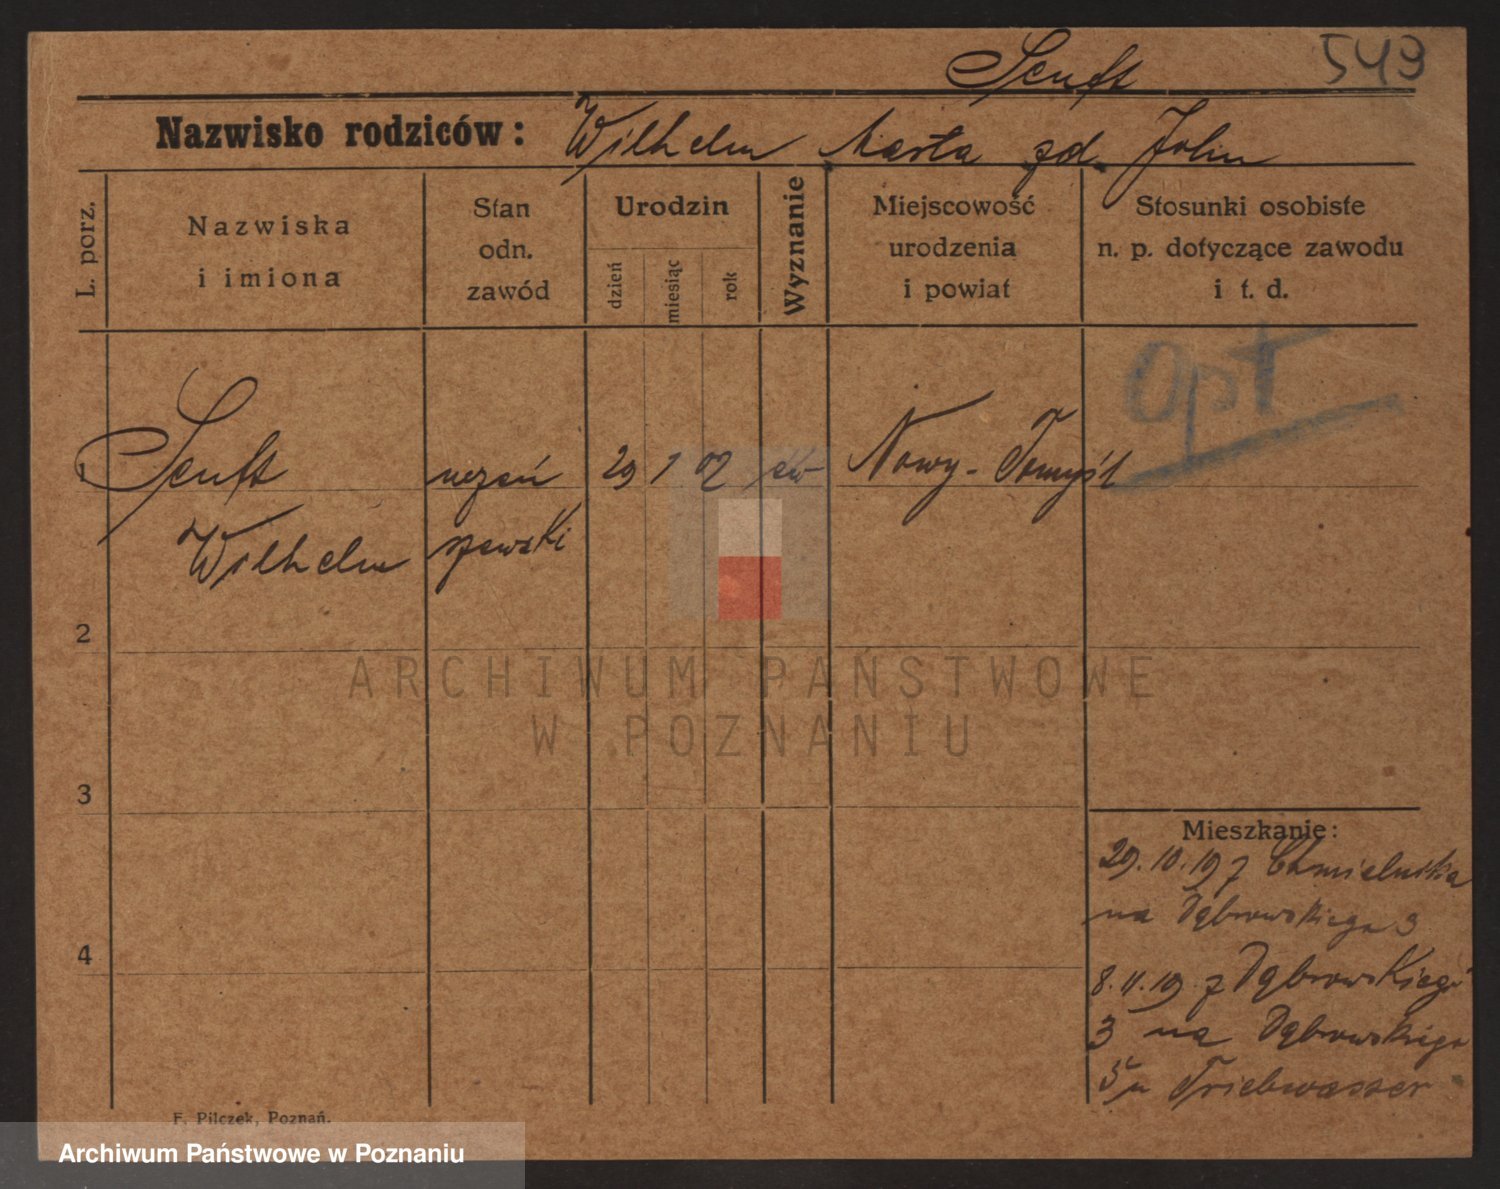 Senft 549
Nazwisko rodziców: Wilhelm Marta zd. John
L. porz.
Nazwiska
i imiona
Stan
odn.
zawód
Urodzin
dzień
miesiąc
rok
Wyznanie
Miejscowość
urodzenia
i powiat
Stosunki osobiste
n. p. dotyczące zawodu
i t. d.
Opt
1 Senft uczeń 29 1 02 ew Nowy-Tomyśl
Wilhelm szewski
2
3
4
ARCHIWUM PAŃSTWOWE
W POZNANIU
Mieszkanie:
29.10.19 z
na Dąbrowskiego 3
8.11.19 z Dąbrowskiego
3 na Dąbrowskiego
5 u Triebwasser
F. Pilczek, Poznań.
Archiwum Państwowe w Poznaniu